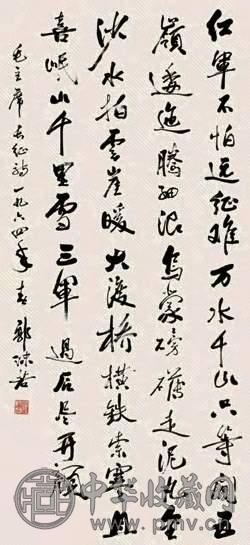 红軍不怕远征难万水千山只等闲五
嶺逶迤腾细浪烏蒙磅礴走泥丸金
沙水拍雲崖暖大渡桥横铁索寒更
喜岷山千里雪三軍過后尽开颜
毛主席长征诗一九六四年春 郭沫若
中華收藏网
www.pmv.cn